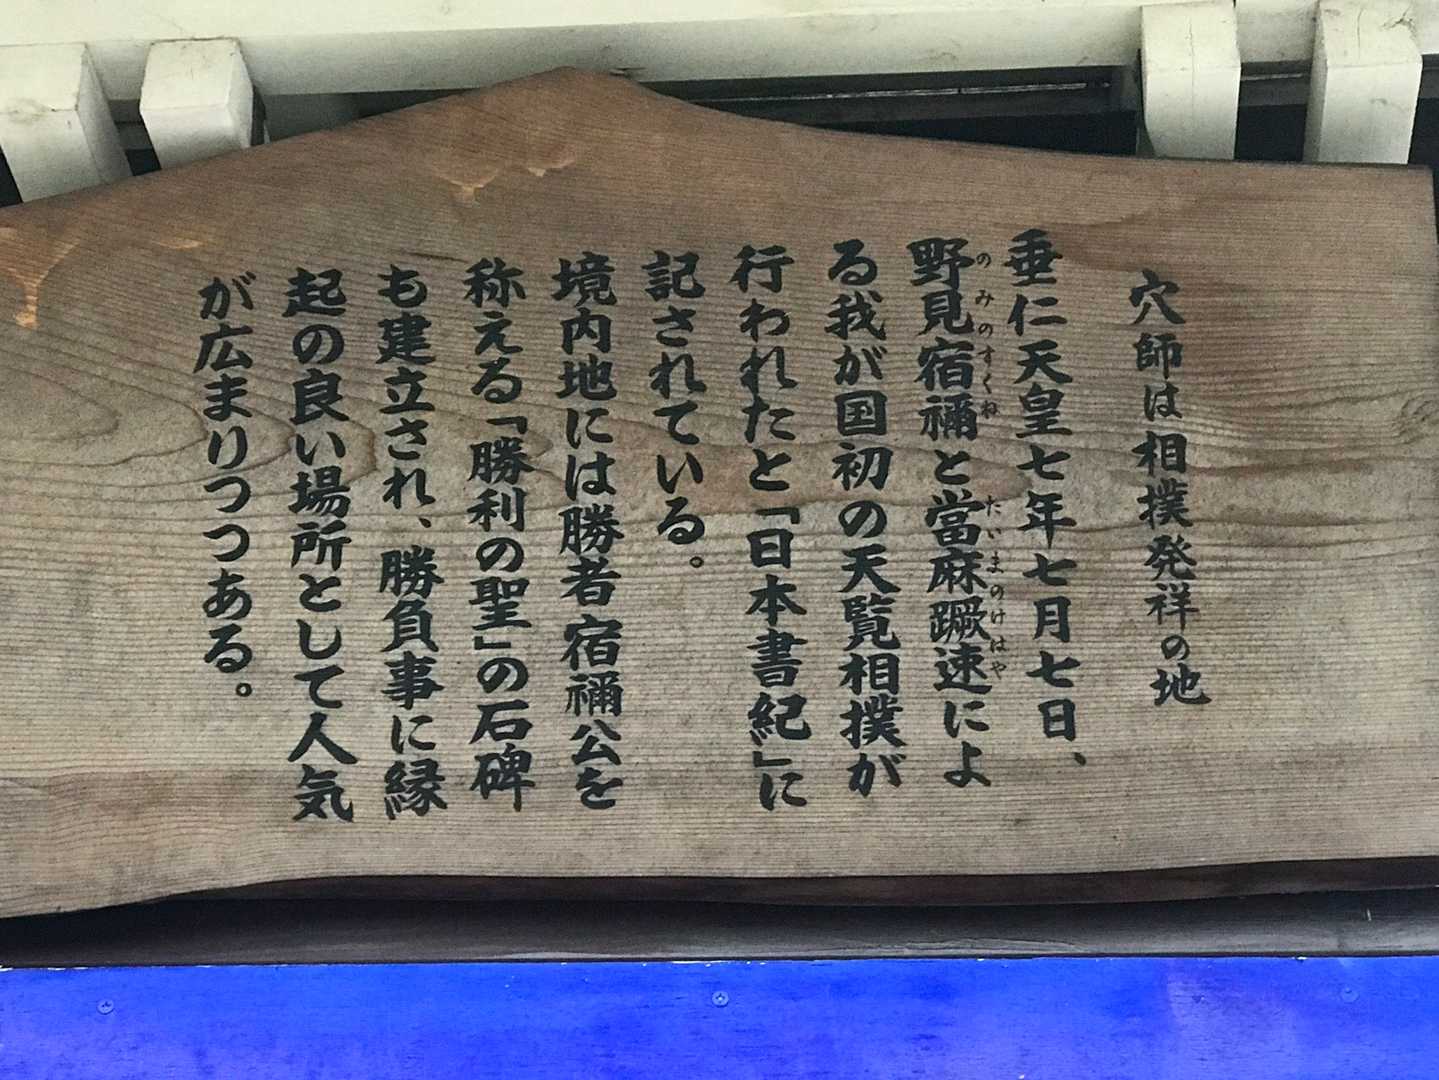 穴師は相撲発祥の地
垂仁天皇七年七月七日、
野見宿禰と當麻蹶速によ
のみのすくね
たいまのけはや
る我が国初の天覧相撲が
行われたと「日本書紀」に
記されている。
境内地には勝者宿禰公を
称える「勝利の聖」の石碑
も建立され、勝負事に縁
起の良い場所として人気
が広まりつつある。